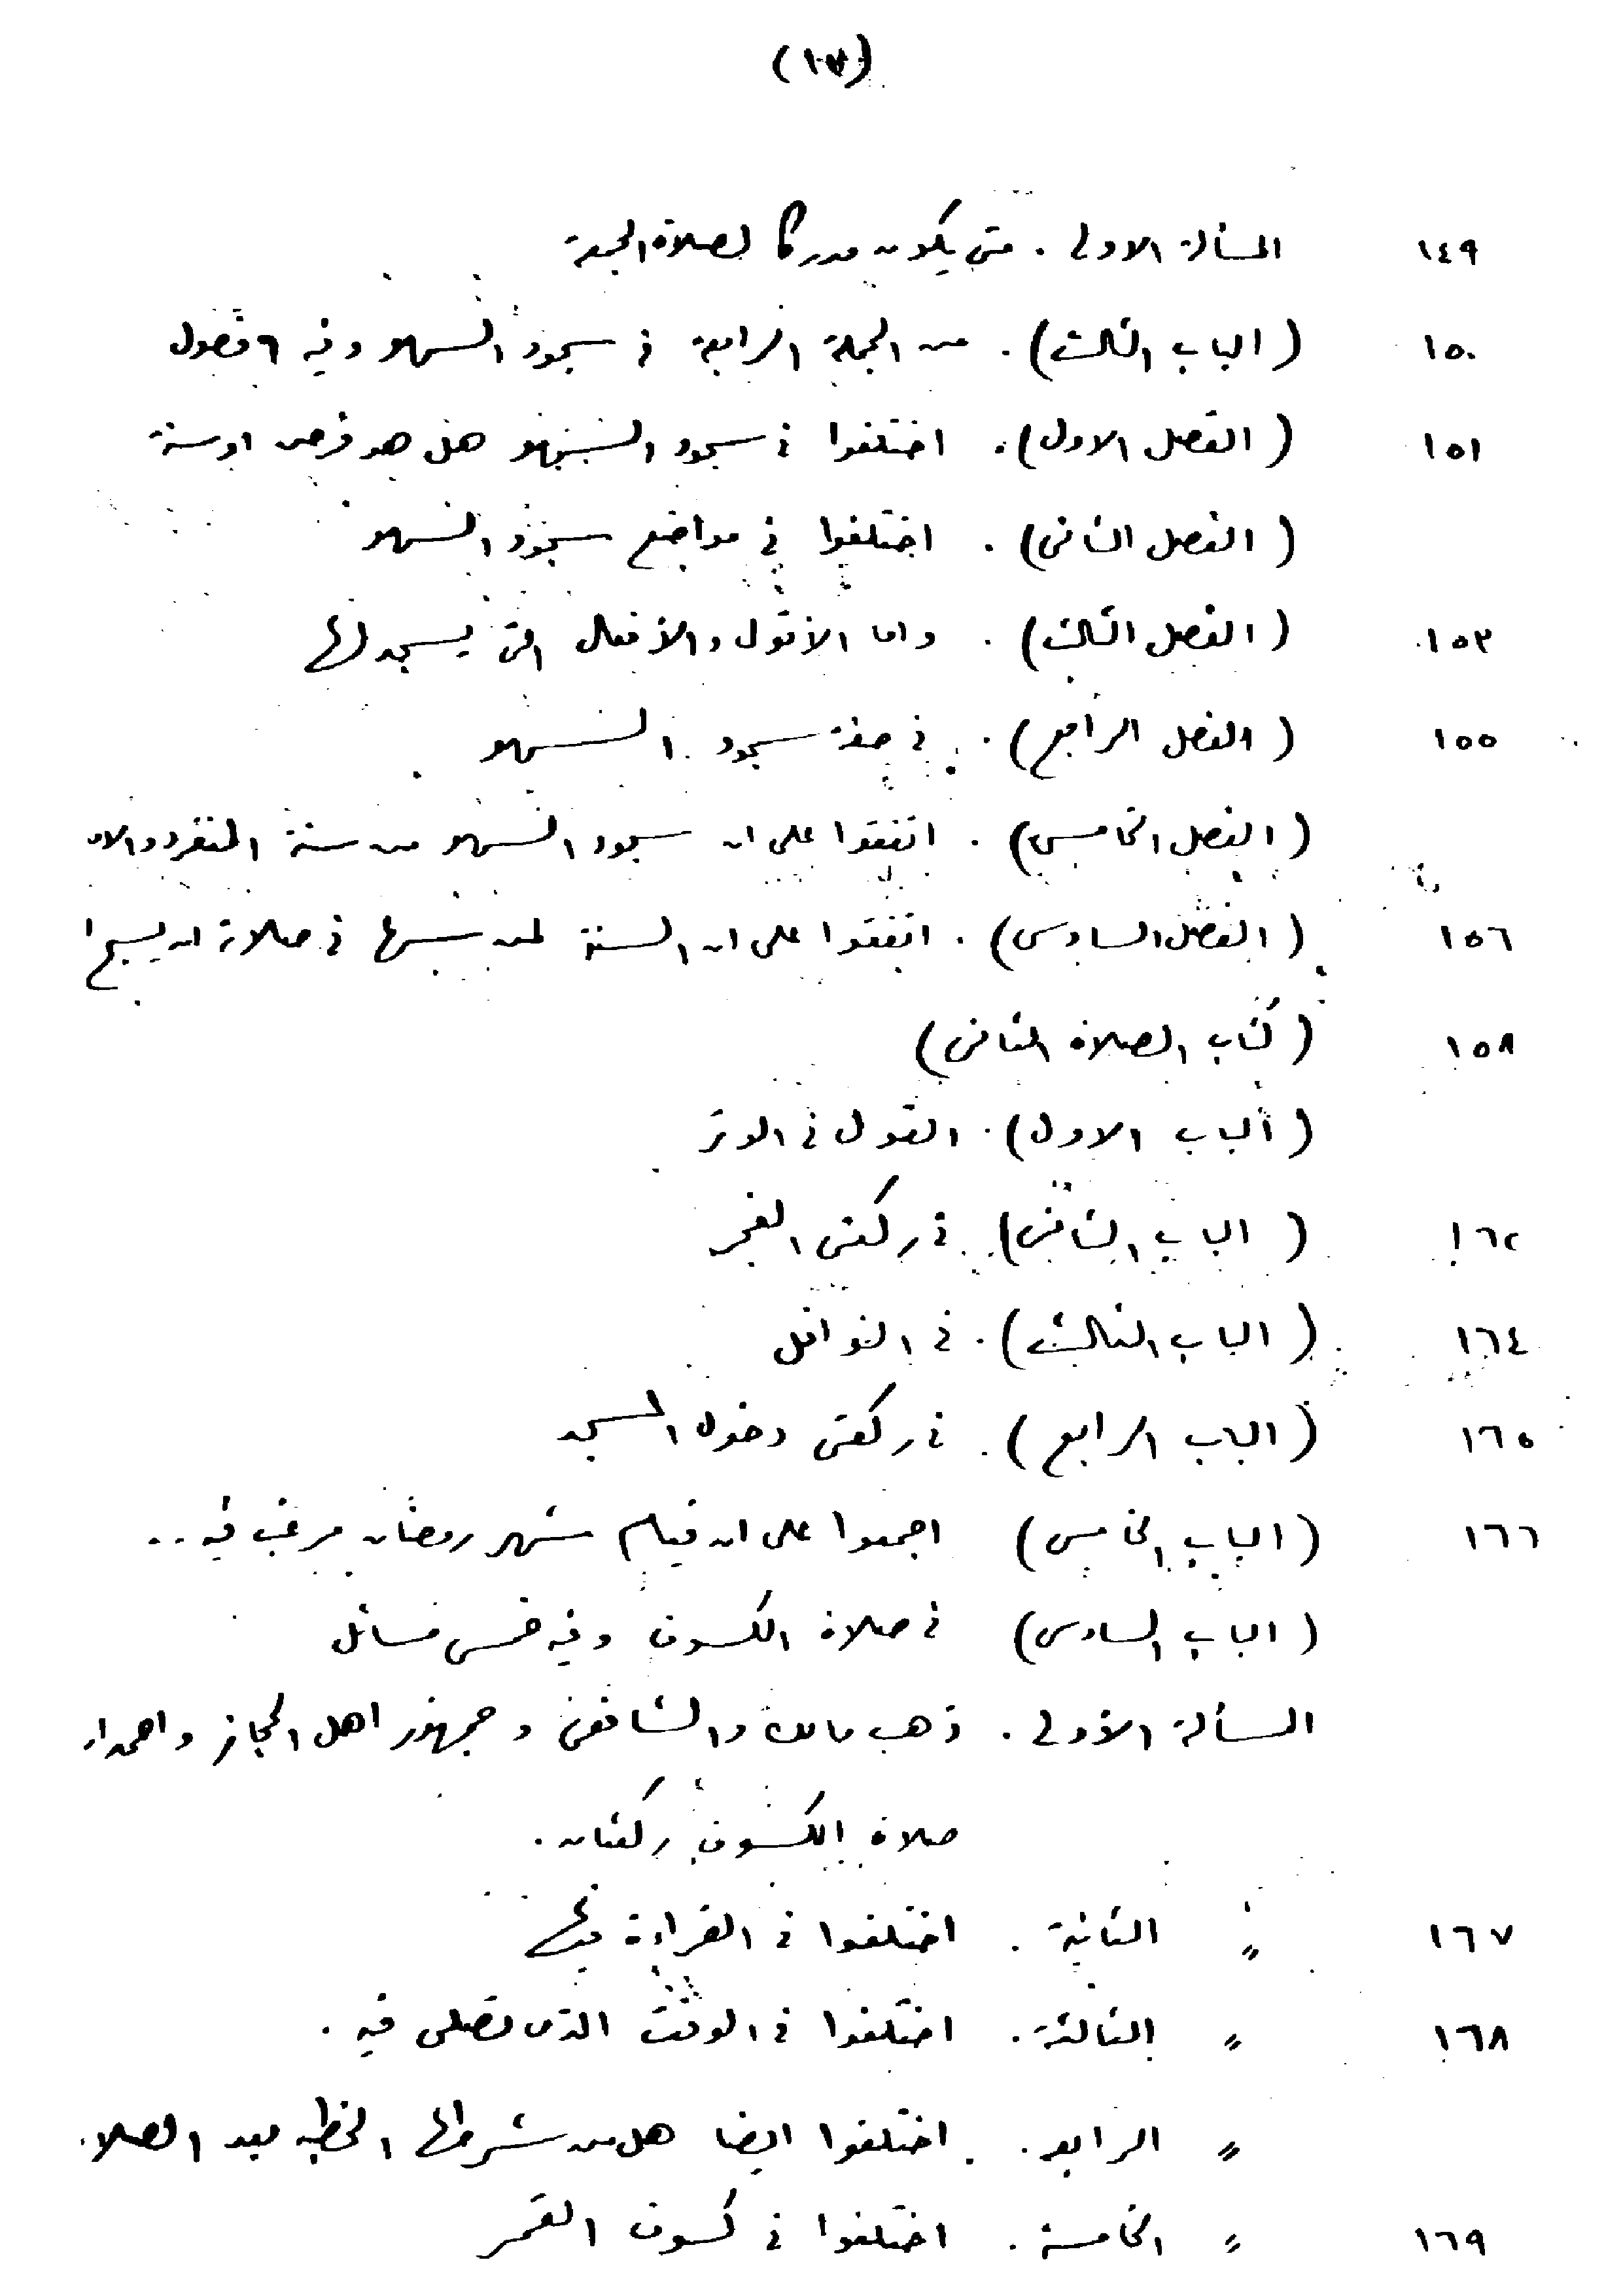 (١٧)
١٤٩ المسألة الاولى . متى يكون مدركا لصلاة الجمعة
١٥٠ (الباب الثالث) . من الجملة الرابعة فى سجود السهو وفيه ٦ فصول
١٥١ (الفصل الاول) . اختلفوا فى سجود السهو هل هو فرض او سنة
(الفصل الثانى) . اختلفوا فى مواضع سجود السهو
١٥٣ (الفصل الثالث) . واما الأقوال والأفعال التى يسجد لها
١٥٥ (الفصل الرابع) . فى صفة سجود السهو
(الفصل الخامس) . اتفقوا على ان سجود السهو من سنة المنفرد والام
١٥٦ (الفصل السادس) . اتفقوا على ان السنة لمن سها فى صلاته ان يسبح ا
١٥٨ (كتاب الصلاة الثانى)
(الباب الاول) . القول فى الوتر
١٦٢ (الباب الثانى) . فى ركعتى الفجر
١٦٤ (الباب الثالث) . فى النوافل
١٦٥ (الباب الرابع) . فى ركعتى دخول المسجد
١٦٦ (الباب الخامس) اجمعوا على ان قيام شهر رمضان مرغب فيه ..
(الباب السادس) فى صلاة الكسوف وفيه خمس مسائل
المسألة الأولى . ذهب مالك والشافعى وجمهور اهل الحجاز واحمد ان
صلاة الكسوف ركعتان .
١٦٧ 〃 الثانية . اختلفوا فى القراءة فيها
١٦٨ 〃 الثالثة . اختلفوا فى الوقت الذى تصلى فيه .
〃 الرابعة . اختلفوا ايضا هل من شرطها الخطبة بعد الصلاة
١٦٩ 〃 الخامسة . اختلفوا فى كسوف القمر